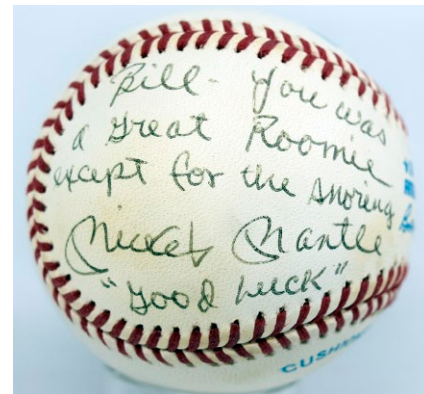 Bill - You was
a great Roomie
except for the snoring
Mickey Mantle
"good luck"
CUSHI